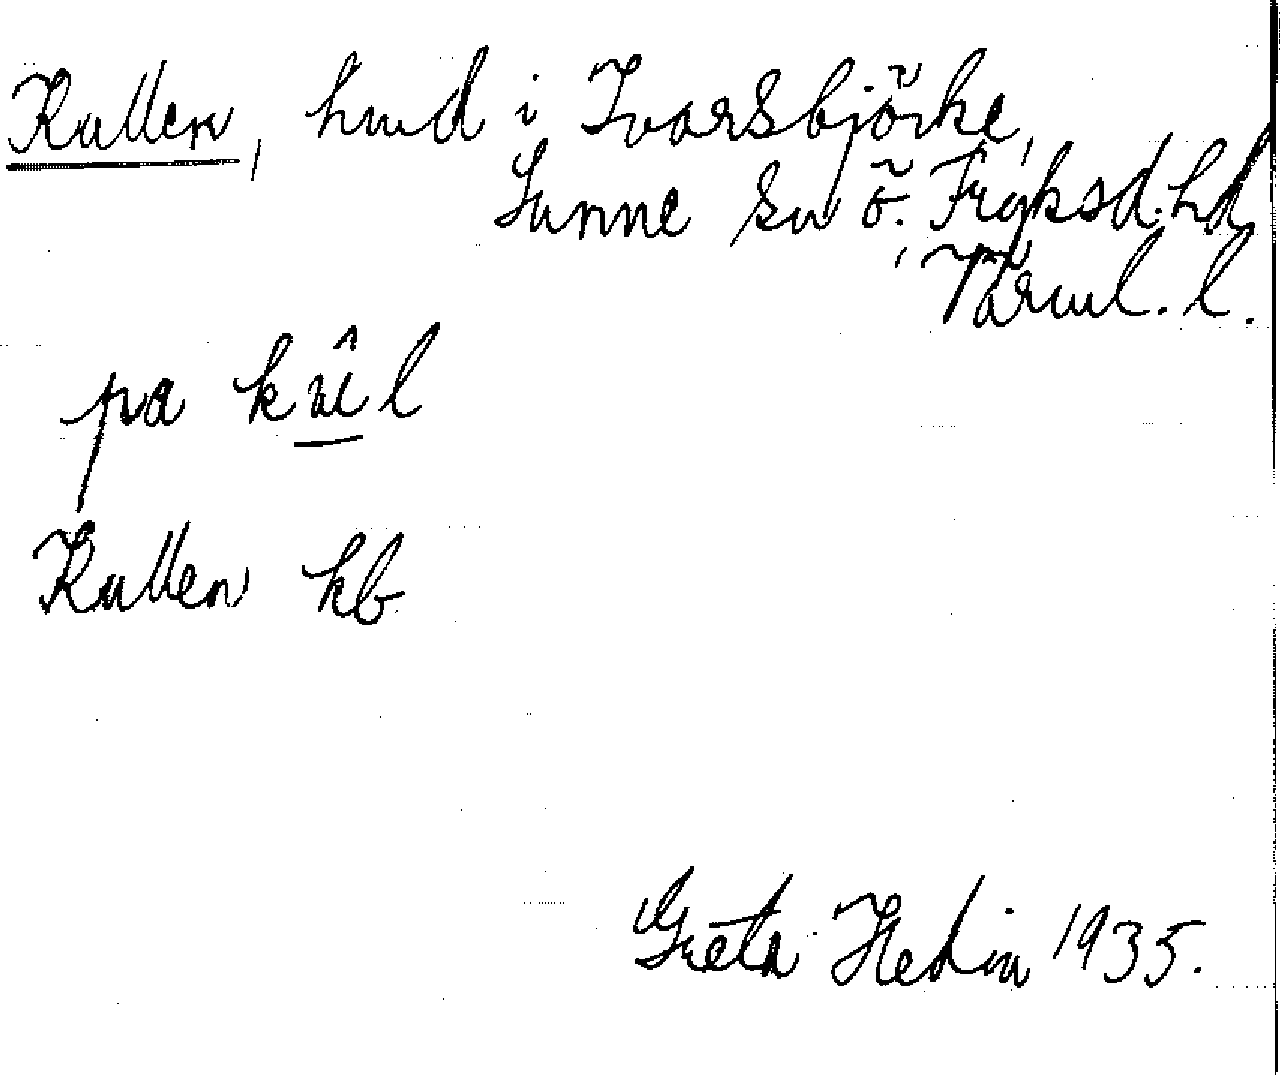 Kullen, hmd i Ivarsbjörke,
Sunne sn, ö. Fryksd. hd,
Värml. l.
pa kûl
Kullen kb
Greta Hedin 1935.